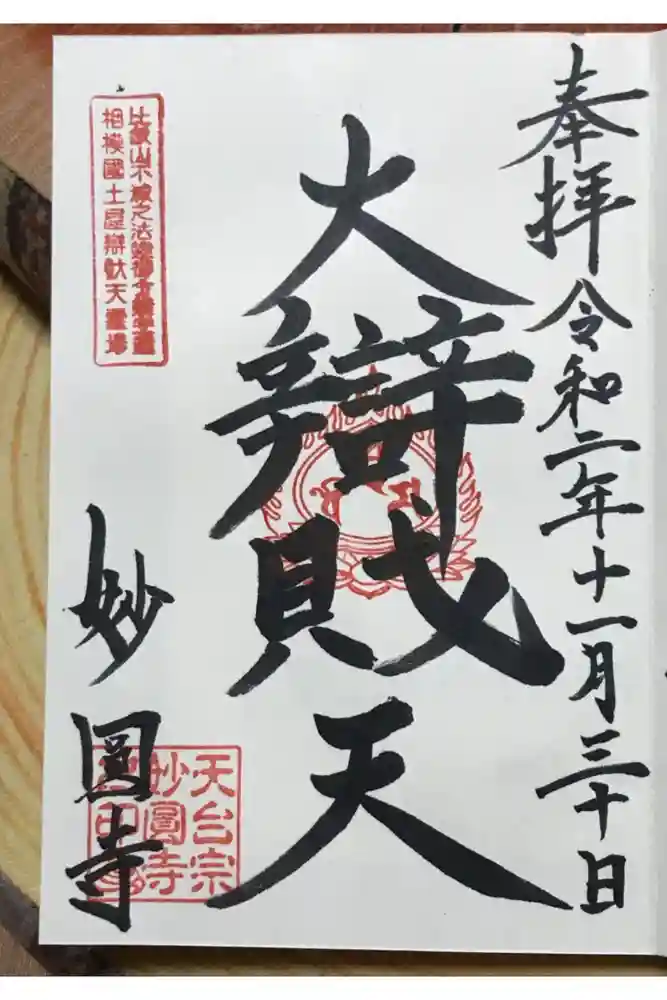 奉拝 令和二年十一月三十日
大辯財天
比叡山不滅之法燈御分燈
相模國土屋辯財天靈場
妙圓寺
天台宗
妙圓寺